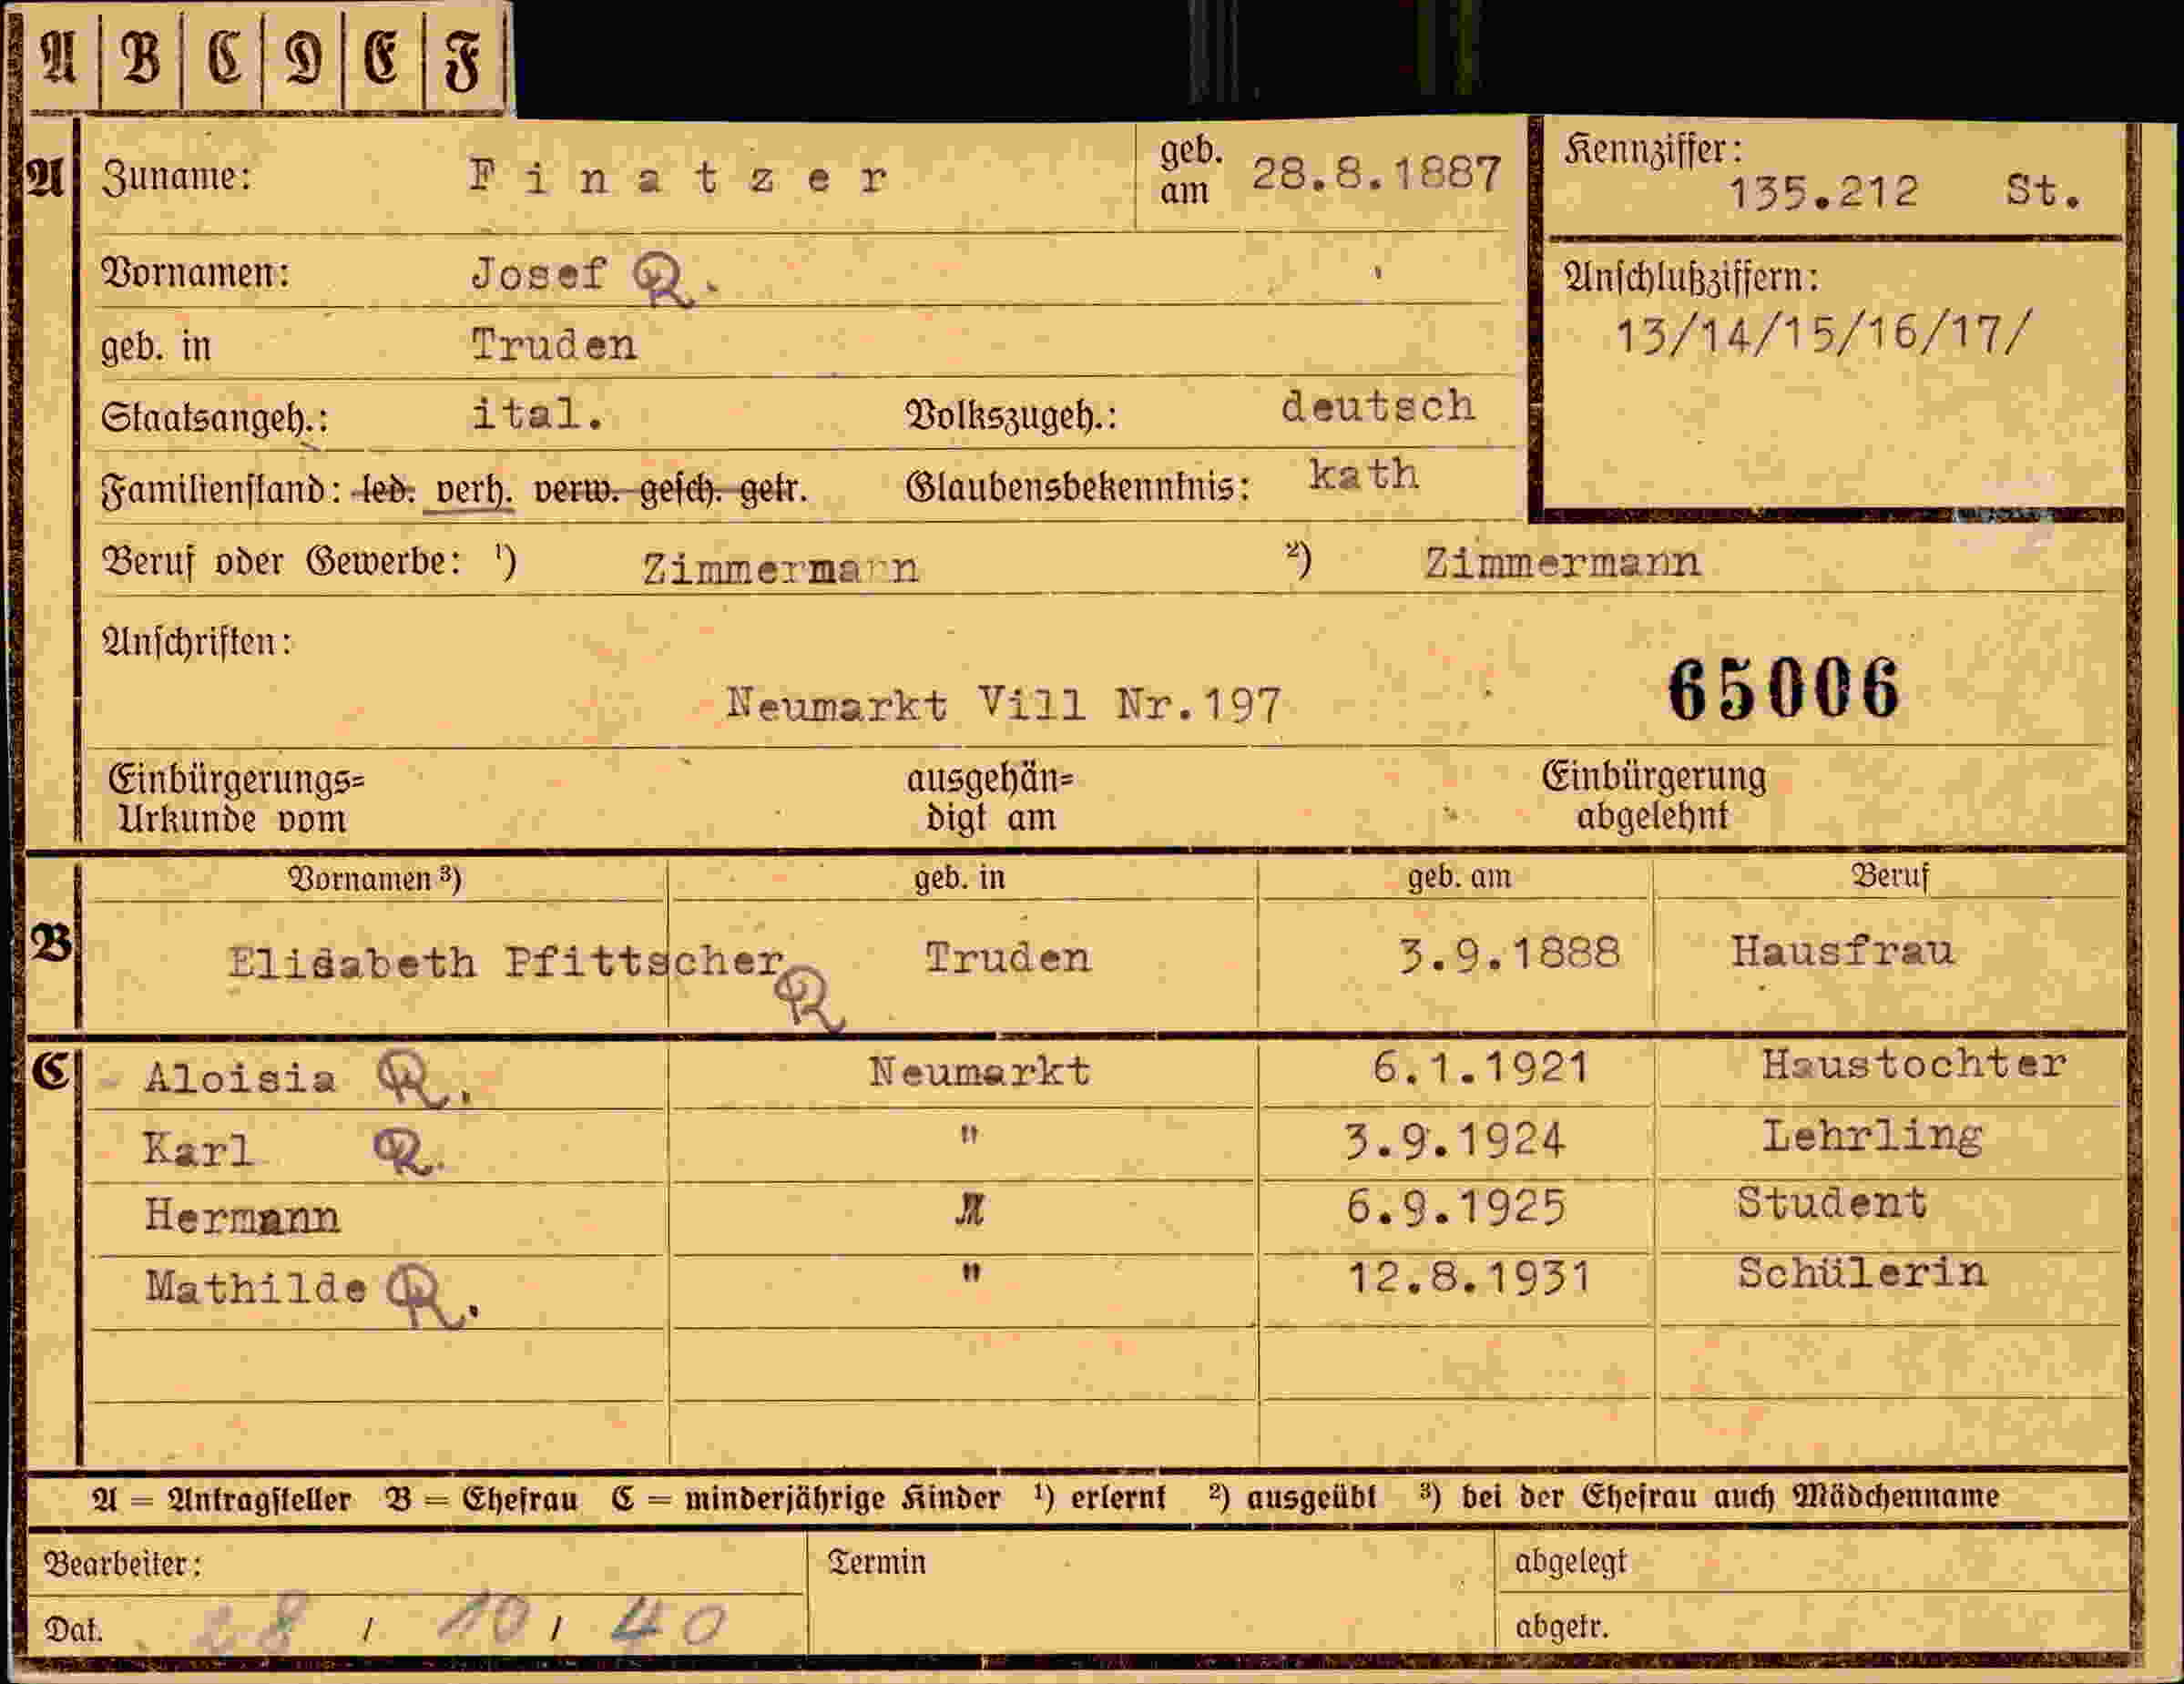 A B C D E F
A Zuname: Finatzer geb. am 28.8.1887 Kennziffer: 135.212 St.
Vornamen: Josef R. Anschlußziffern:
13/14/15/16/17/
geb. in Truden
Staatsangeh.: ital. Volkszugeh.: deutsch
Familienstand: led. verh. verw. gesch. getr. Glaubensbekenntnis: kath
Beruf oder Gewerbe: ¹) Zimmermann ²) Zimmermann
Anschriften:
Neumarkt Vill Nr.197 65006
Einbürgerungs= Urkunde vom ausgehän= digt am Einbürgerung abgelehnt
Vornamen ³) geb. in geb. am Beruf
B Elisabeth Pfittscher R Truden 3.9.1888 Hausfrau
C Aloisia R. Neumarkt 6.1.1921 Haustochter
Karl R. " 3.9.1924 Lehrling
Hermann " 6.9.1925 Student
Mathilde R. " 12.8.1931 Schülerin
A = Antragsteller B = Ehefrau C = minderjährige Kinder ¹) erlernt ²) ausgeübt ³) bei der Ehefrau auch Mädchenname
Bearbeiter: Termin abgelegt
Dat. 28 / 10 / 40 abgetr.